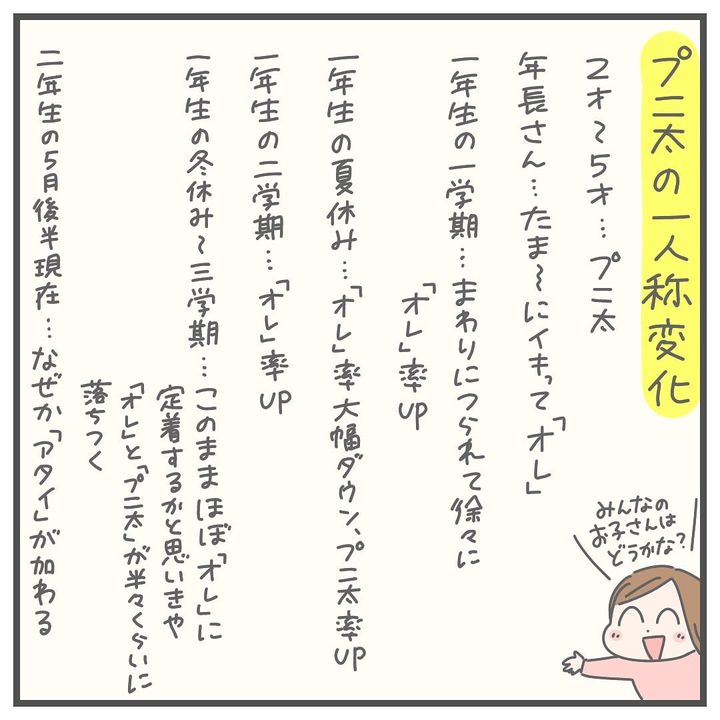 プニ太の一人称変化
2才〜5才…プニ太
年長さん…たま〜にイキって「オレ」
一年生の一学期…まわりにつられて徐々に
「オレ」率UP
一年生の夏休み…「オレ」率大幅ダウン、プニ太率UP
一年生の二学期…「オレ」率UP
一年生の冬休み〜三学期…このままほぼ「オレ」に
定着するかと思いきや
「オレ」と「プニ太」が半々くらいに
落ちつく
二年生の5月後半現在…なぜか「アタイ」が加わる
みんなの
お子さんは
どうかな?